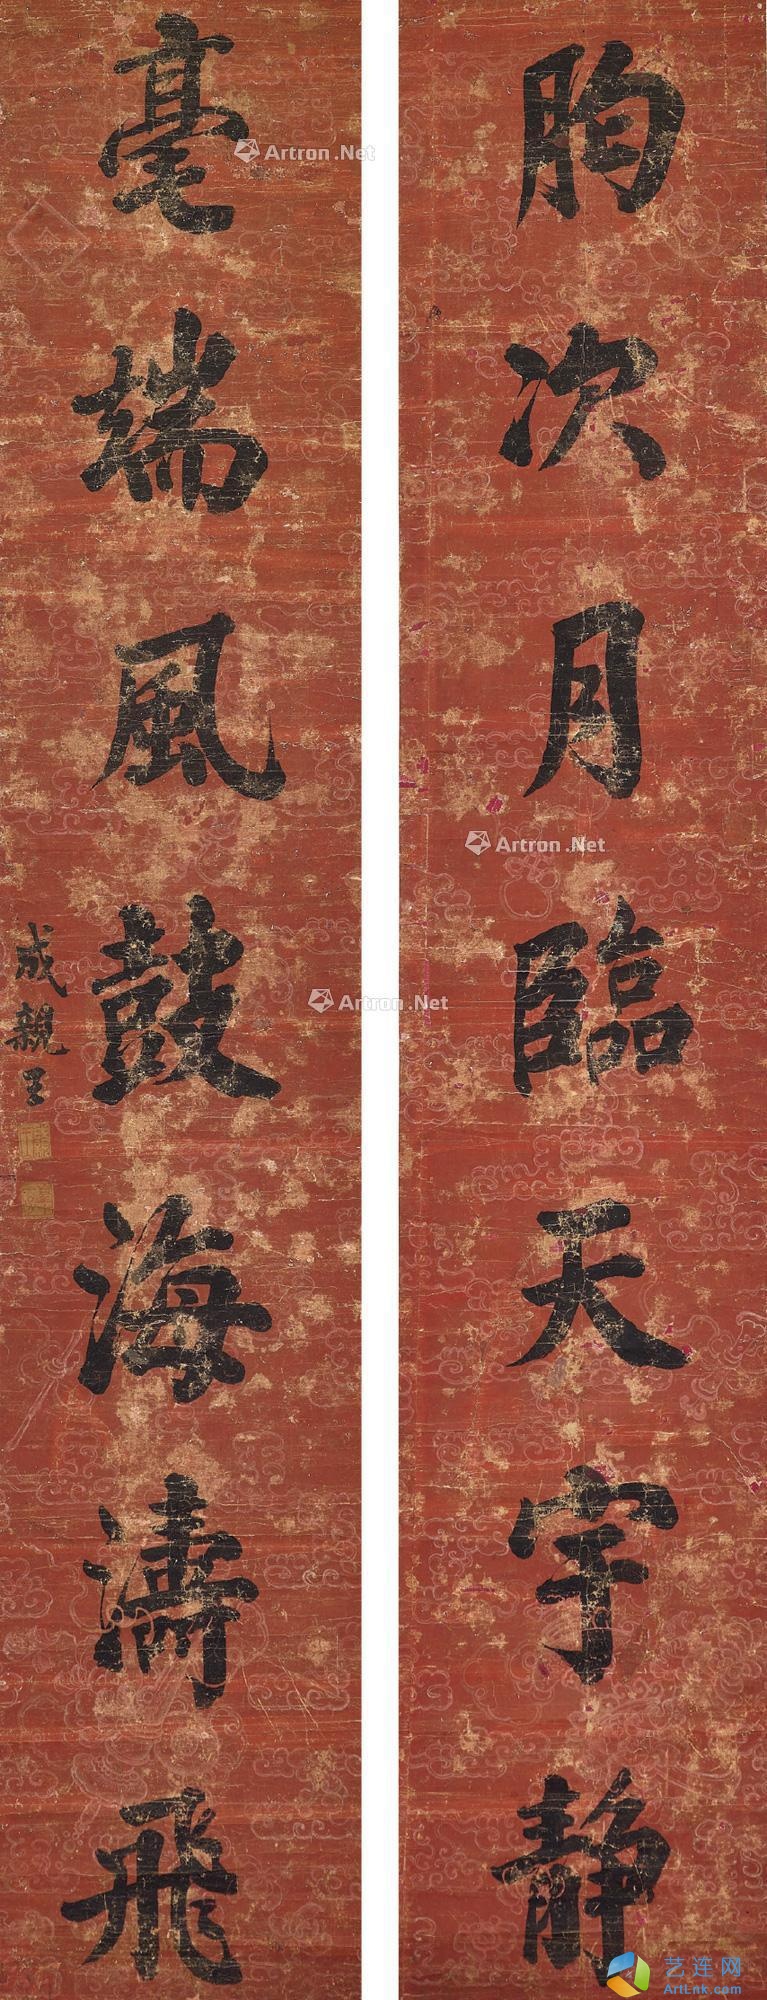 胷次月臨天宇静
毫端風鼓海濤飛
成親王
Artron.Net
Artron.Net
Artron.Net
艺连网
ArtLnk.com